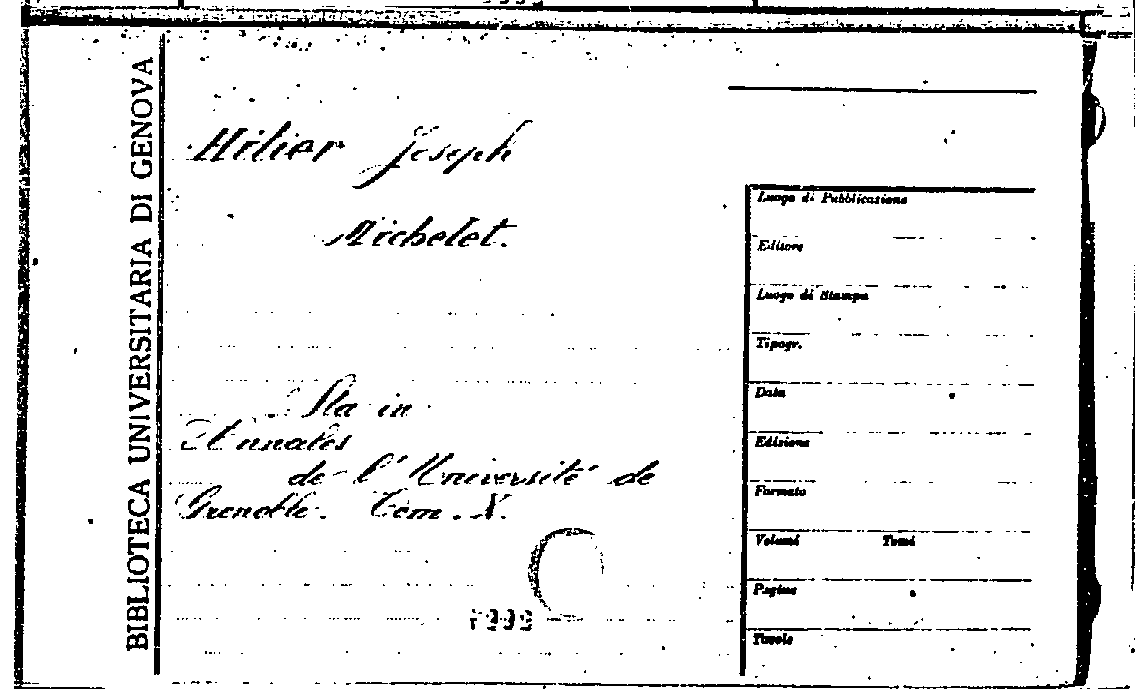 BIBLIOTECA UNIVERSITARIA DI GENOVA
Hitier Joseph
Michelet.
Sta in
Annales
de l'Université de
Grenoble. Tom. X.
Luogo di Pubblicazione
Editore
Luogo di Stampa
Tipogr.
Data
Edizione
Formato
Volumi Tomi
Pagine
Tavole